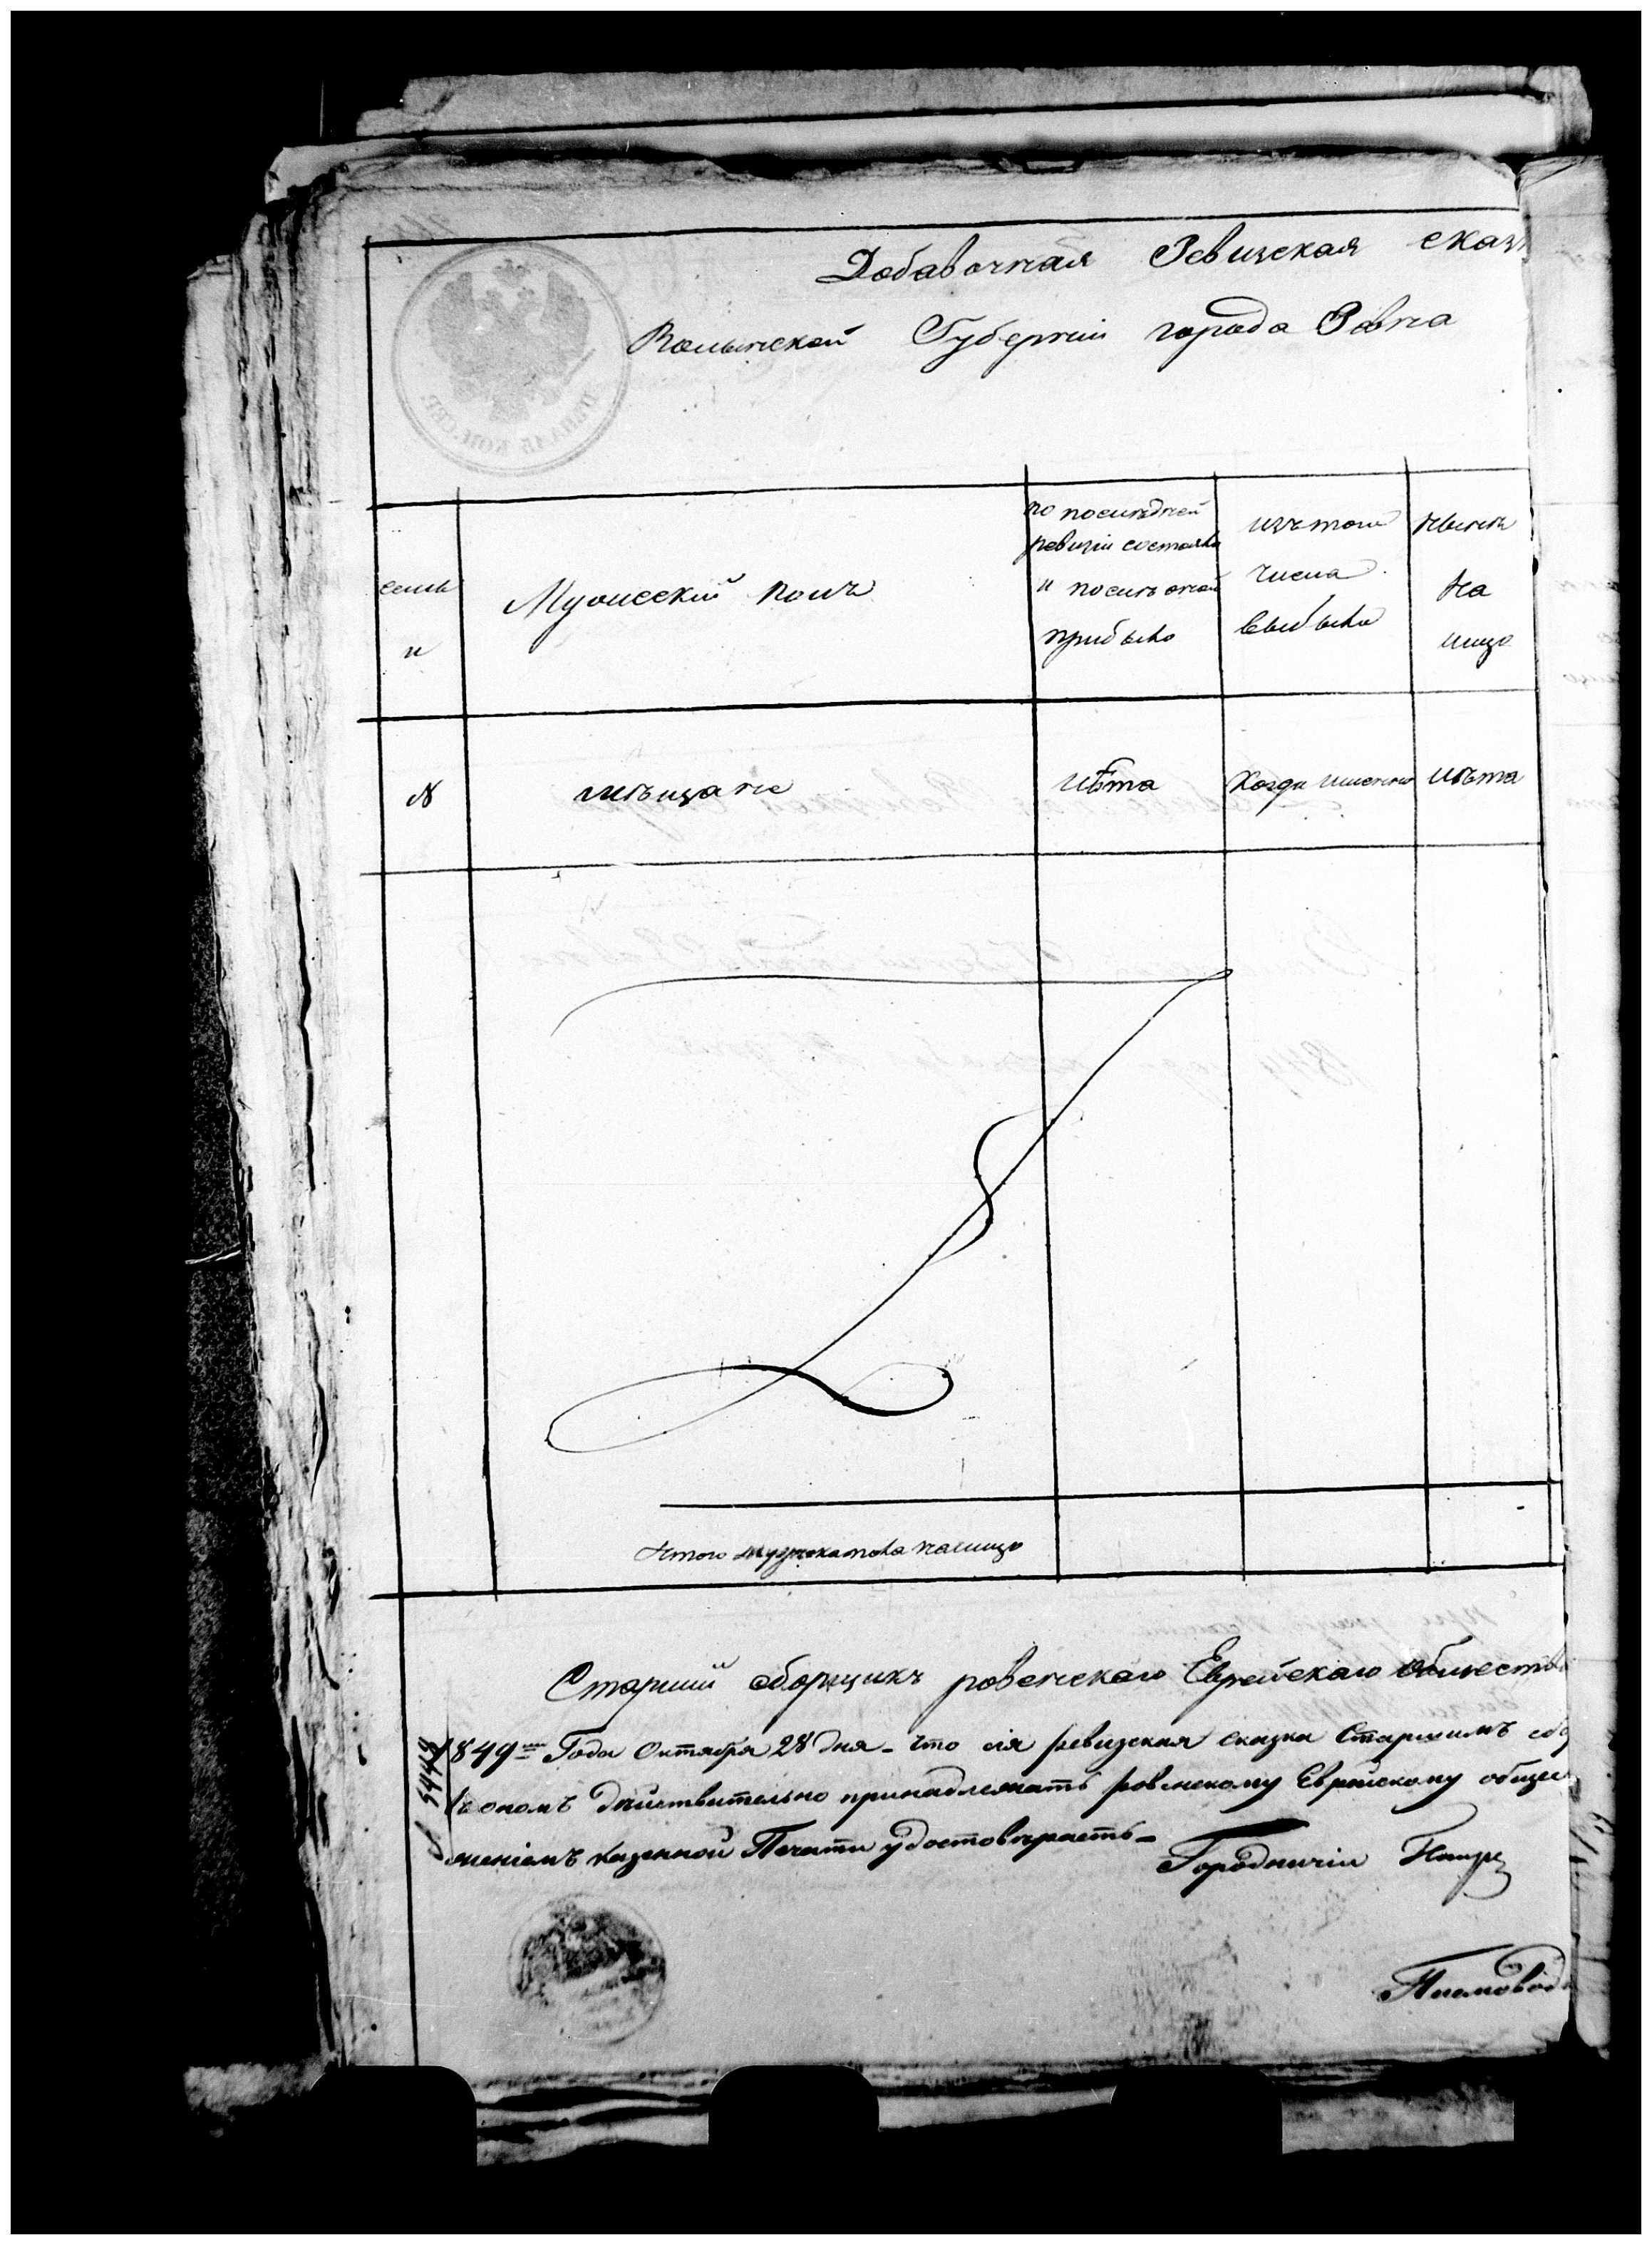 Добавочная Ревизская сказк
Волынской Губерніи города Ровна
семьи
и
№
Мужескій полъ
по последней
ревизіи состояло
и после оной
прибыло
изъ того
числа
выбыло
Ныне
на
лицо
мѣщане
лѣта
Когда именно
лѣта
Итого мужеска пола налицо
Старшій сборщикъ ровенскаго Еврейскаго обществ
1849го Года Октября 28 дня - что сія ревизская сказка Старшимъ сбо
ономъ действительно принадлежатъ ровенскому Еврейскому общес
жениемъ казенной Печати удостовѣряетъ -
Городничій
Писмовод
№ 5448